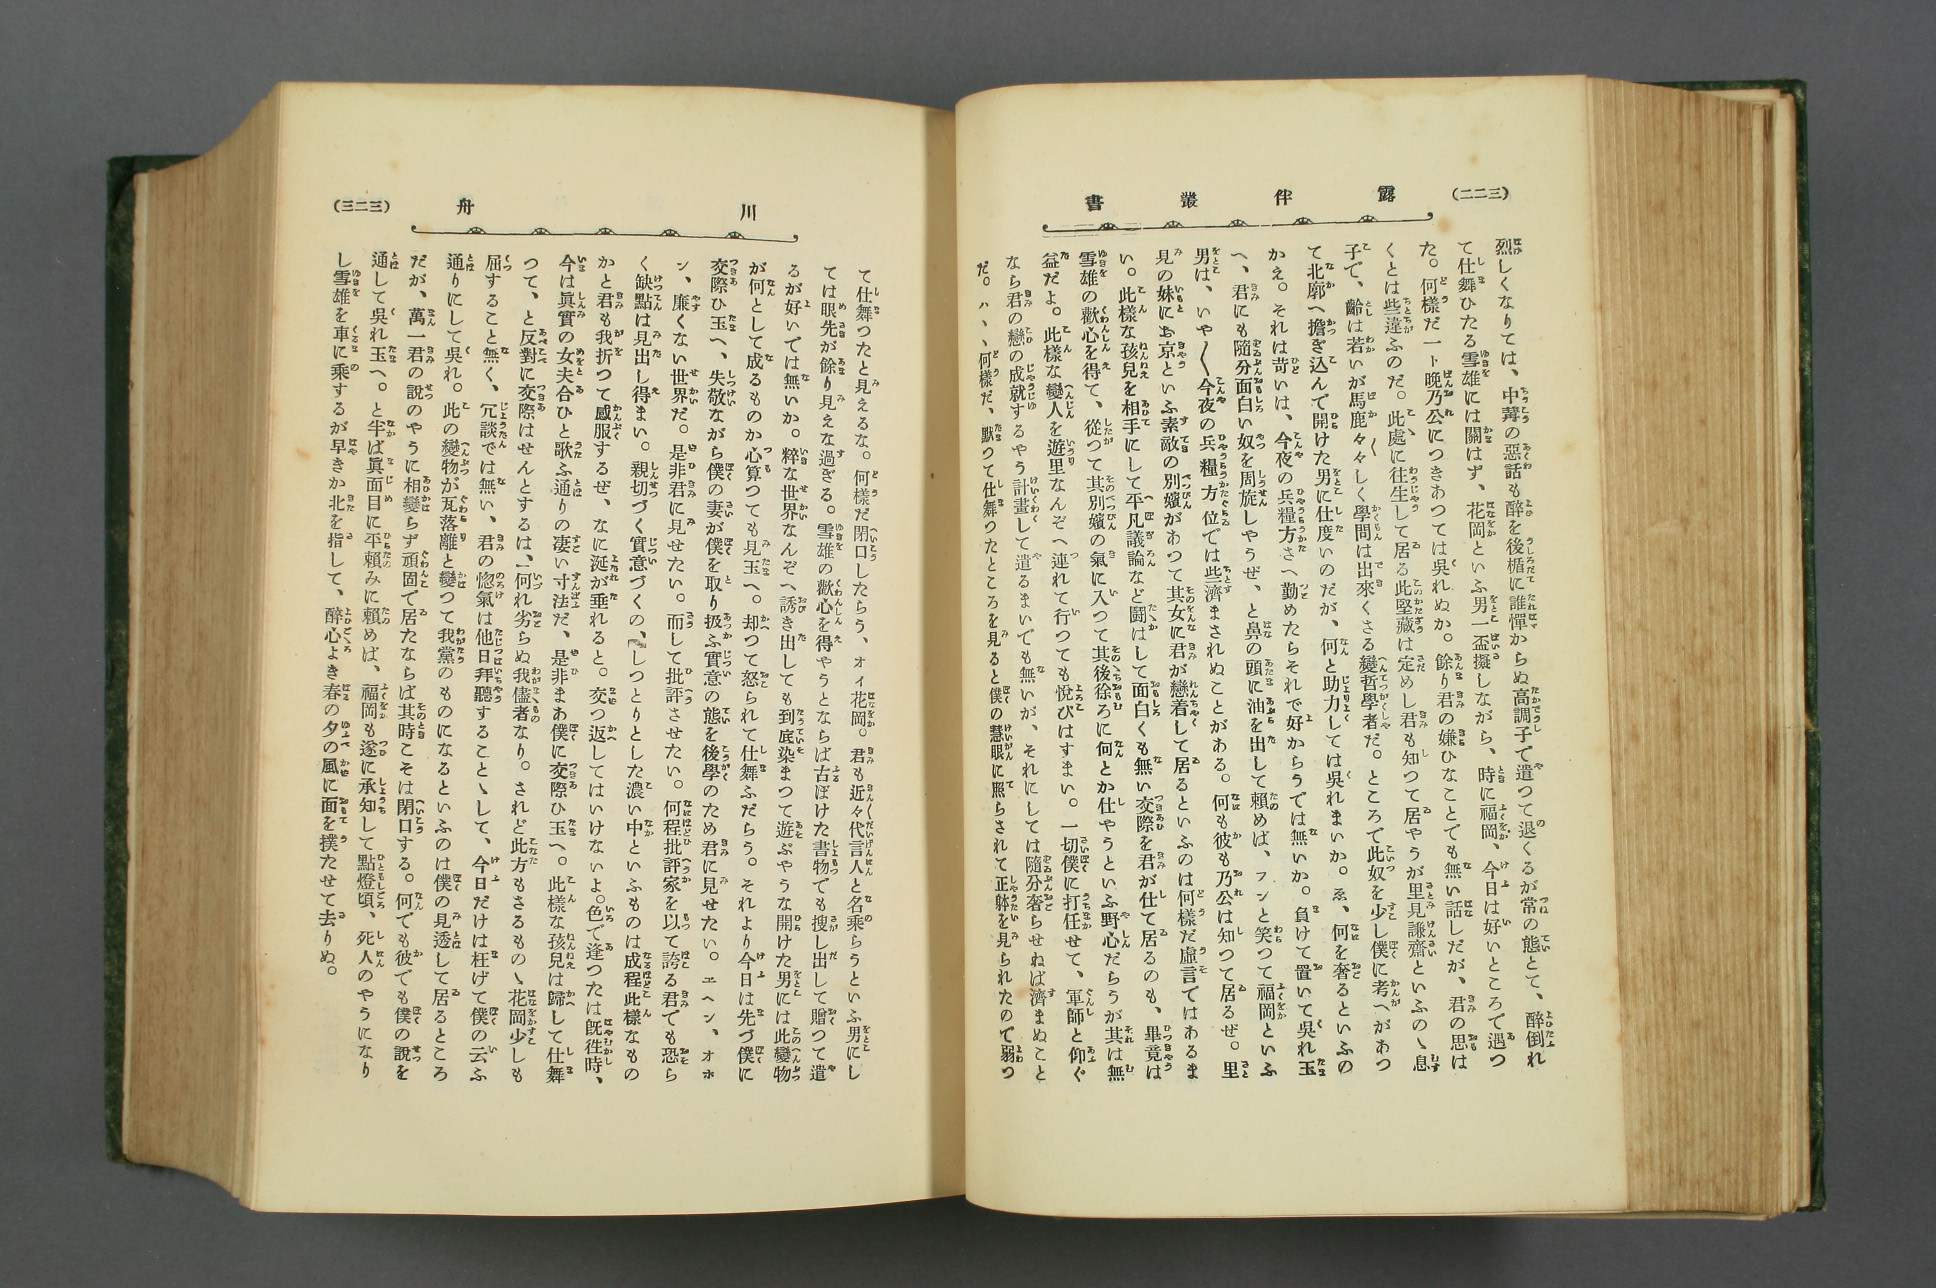 (三二二)
露伴叢書
烈しくなりては、中冓の惡話も醉を後楯に誰憚からぬ高調子で遣つて退くるが常の態とて、醉倒れ
て仕舞ひたる雪雄には關はず、花岡といふ男一盃擬しながら、時に福岡、今日は好いところで遇つ
た。何樣だ一ト晩乃公につきあつては吳れぬか。餘り君の嫌ひなことでも無い話しだが、君の思は
くとは些違ふのだ。此處に往生して居る此堅藏は定めし君も知つて居やうが里見謙齋といふのゝ息
子で、齡は若いが馬鹿々々しく學問は出來くさる變哲學者だ。ところで此奴を少し僕に考へがあつ
て北廓へ擔ぎ込んで開けた男に仕度いのだが、何と助力しては吳れまいか。ゑ、何を奢るといふの
かえ。それは苛いは、今夜の兵糧方さへ勤めたらそれで好からうでは無いか。負けて置いて吳れ玉
へ、君にも隨分面白い奴を周旋しやうぜ、と鼻の頭に油を出して賴めば、フンと笑つて福岡といふ
男は、いや〱今夜の兵糧方位では些濟まされぬことがある。何も彼も乃公は知つて居るぜ。里
見の妹にお京といふ素敵の別嬪があつて其女に君が戀着して居るといふのは何樣だ虛言ではあるま
い。此樣な孩兒を相手にして平凡議論など鬪はして面白くも無い交際を君が仕て居るのも、畢竟は
雪雄の歡心を得て、從つて其別嬪の氣に入つて其後徐ろに何とか仕やうといふ野心だらうが其は無
益だよ。此樣な變人を遊里なんぞへ連れて行つても悅びはすまい。一切僕に打任せて、軍師と仰ぐ
なら君の戀の成就するやう計畫して遣るまいでも無いが、それにしては隨分奢らせねば濟まぬこと
だ。ハヽヽ何樣だ、默つて仕舞つたところを見ると僕の慧眼に照らされて正躰を見られたので弱つ
川舟
(三二三)
て仕舞つたと見えるな。何樣だ閉口したらう、オイ花岡。君も近々代言人と名乘らうといふ男にし
ては眼先が餘り見えな過ぎる。雪雄の歡心を得やうとならば古ぼけた書物でも搜し出して贈つて遣
るが好いでは無いか。粹な世界なんぞへ誘き出しても到底染まつて遊ぶやうな開けた男には此變物
が何として成るものか心算つても見玉へ。却つて怒られて仕舞ふだらう。それより今日は先づ僕に
交際ひ玉へ、失敬ながら僕の妻が僕を取り扱ふ實意の態を後學のため君に見せたい。エヘン、オホ
ン、廉くない世界だ。是非君に見せたい。而して批評させたい。何程批評家を以て誇る君でも恐ら
く缺點は見出し得まい。親切づく實意づくの、しつとりとした濃い中といふものは成程此樣なもの
かと君も我折つて感服するぜ、なに涎が垂れると。交つ返してはいけないよ。色で逢つたは旣徃時、
今は眞實の女夫合ひと歌ふ通りの凄い寸法だ、是非まあ僕に交際ひ玉へ。此樣な孩兒は歸して仕舞
つて、と反對に交際はせんとするは、何れ劣らぬ我儘者なり。されど此方もさるものゝ花岡少しも
屈すること無く、冗談では無い、君の惚氣は他日拜聽することゝして、今日だけは枉げて僕の云ふ
通りにして吳れ。此の變物が瓦落離と變つて我黨のものになるといふのは僕の見透して居るところ
だが、萬一君の說のやうに相變らず頑固で居たならば其時こそは閉口する。何でも彼でも僕の說を
通して吳れ玉へ。と半ば眞面目に平賴みに賴めば、福岡も遂に承知して點燈頃、死人のやうになり
し雪雄を車に乘するが早きか北を指して、醉心よき春の夕の風に面を撲たせて去りぬ。